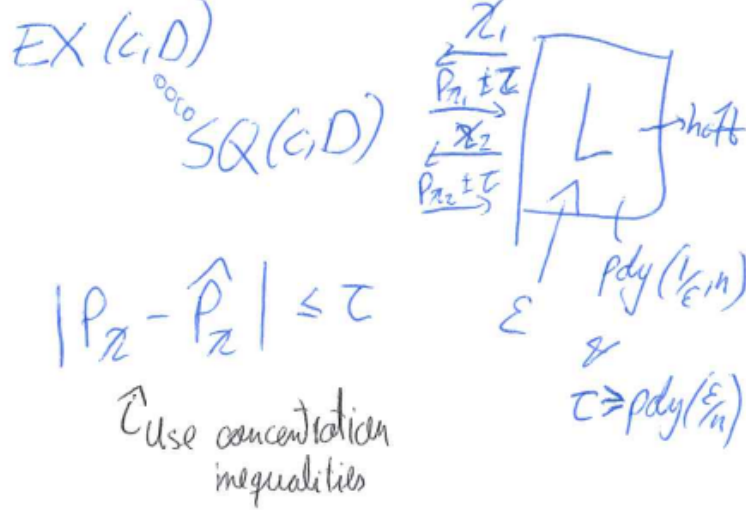 EX(c,D)
SQ(c,D)
χ₁
P_χ₁ ± τ
χ₂
P_χ₂ ± τ
L
→ h ∈ H
ε
poly(1/ε, n)
&
τ ≥ poly(ε/n)
|P_χ - P̂_χ| ≤ τ
use concentration
inequalities